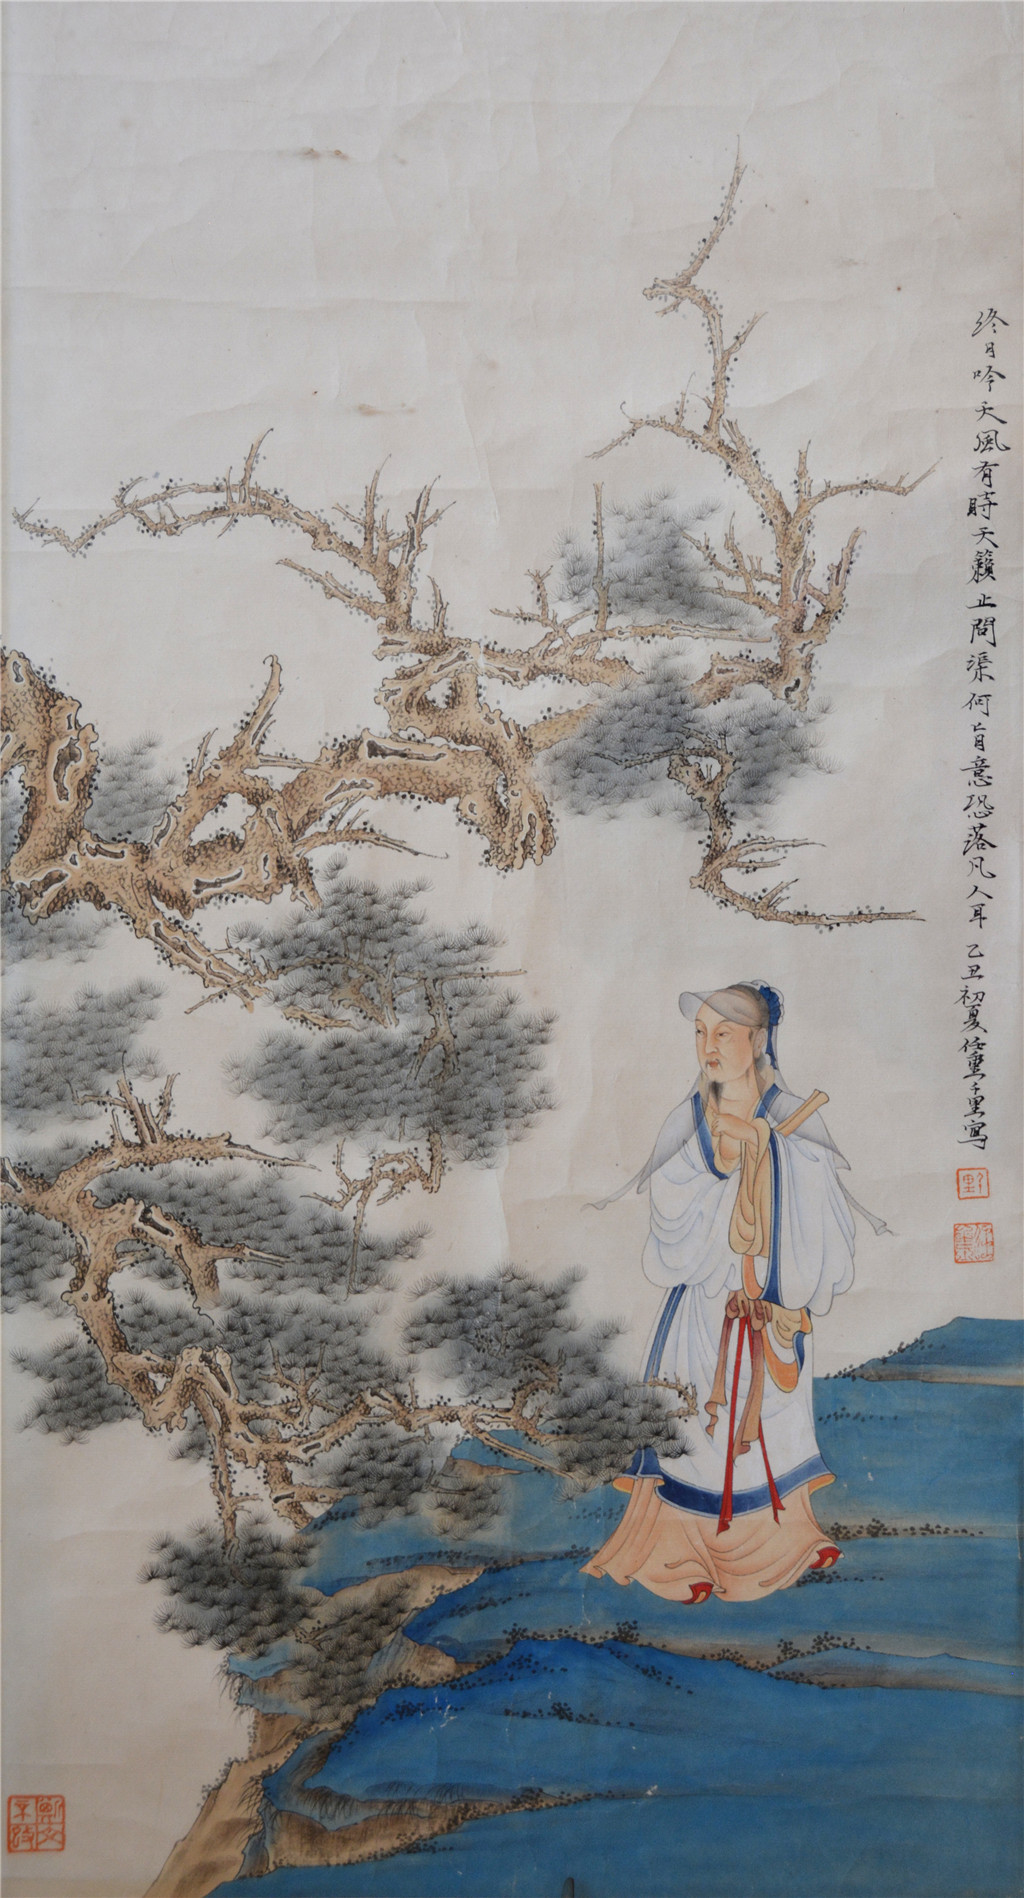 終日吟天風有時天籟止問渠何旨意恐落凡人耳 乙丑初夏任重千里寫
千里